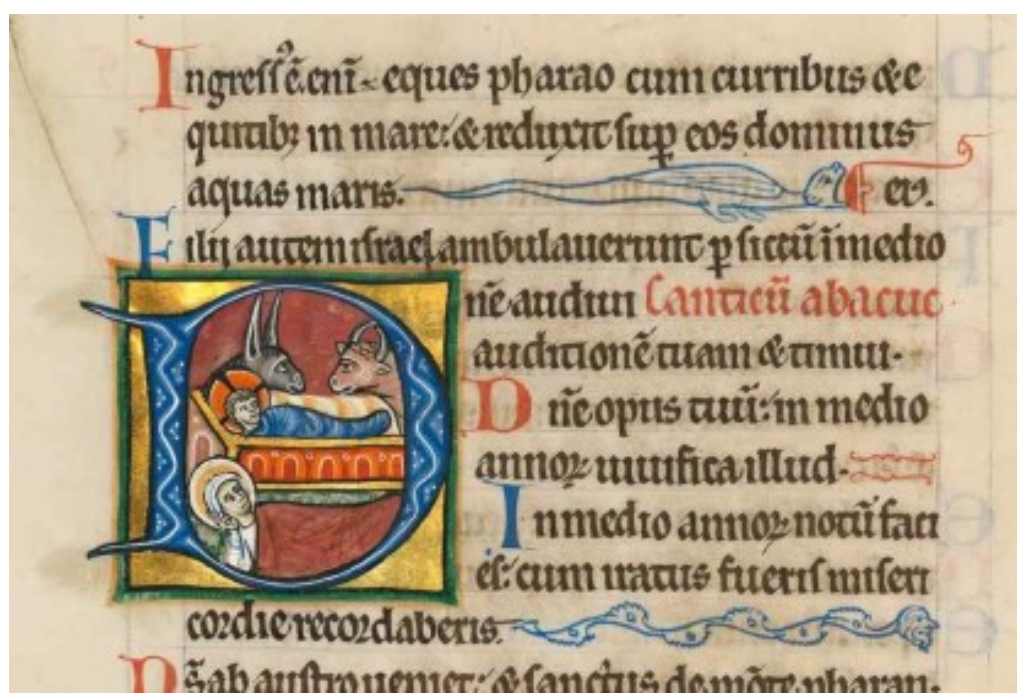 Ingressꝰ ē. eni͂ eques pharao cum curribus &e
quitibꝫ in mare: & reduxit suꝑ eos dominus
aquas maris. ev.
Filij autem israel ambulauerunt ꝑ siccū ī medio
Dn̄e audiui Canticū abacuc
auditionē tuam & timui.
Dn̄e opus tuū: in medio
annoꝝ uiuifica illud.
In medio annoꝝ notū faci
es: cum iratus fueris miseri
cordie recordaberis.
Ds̄ ab austro ueniet: & sanctus de mōte pharan.